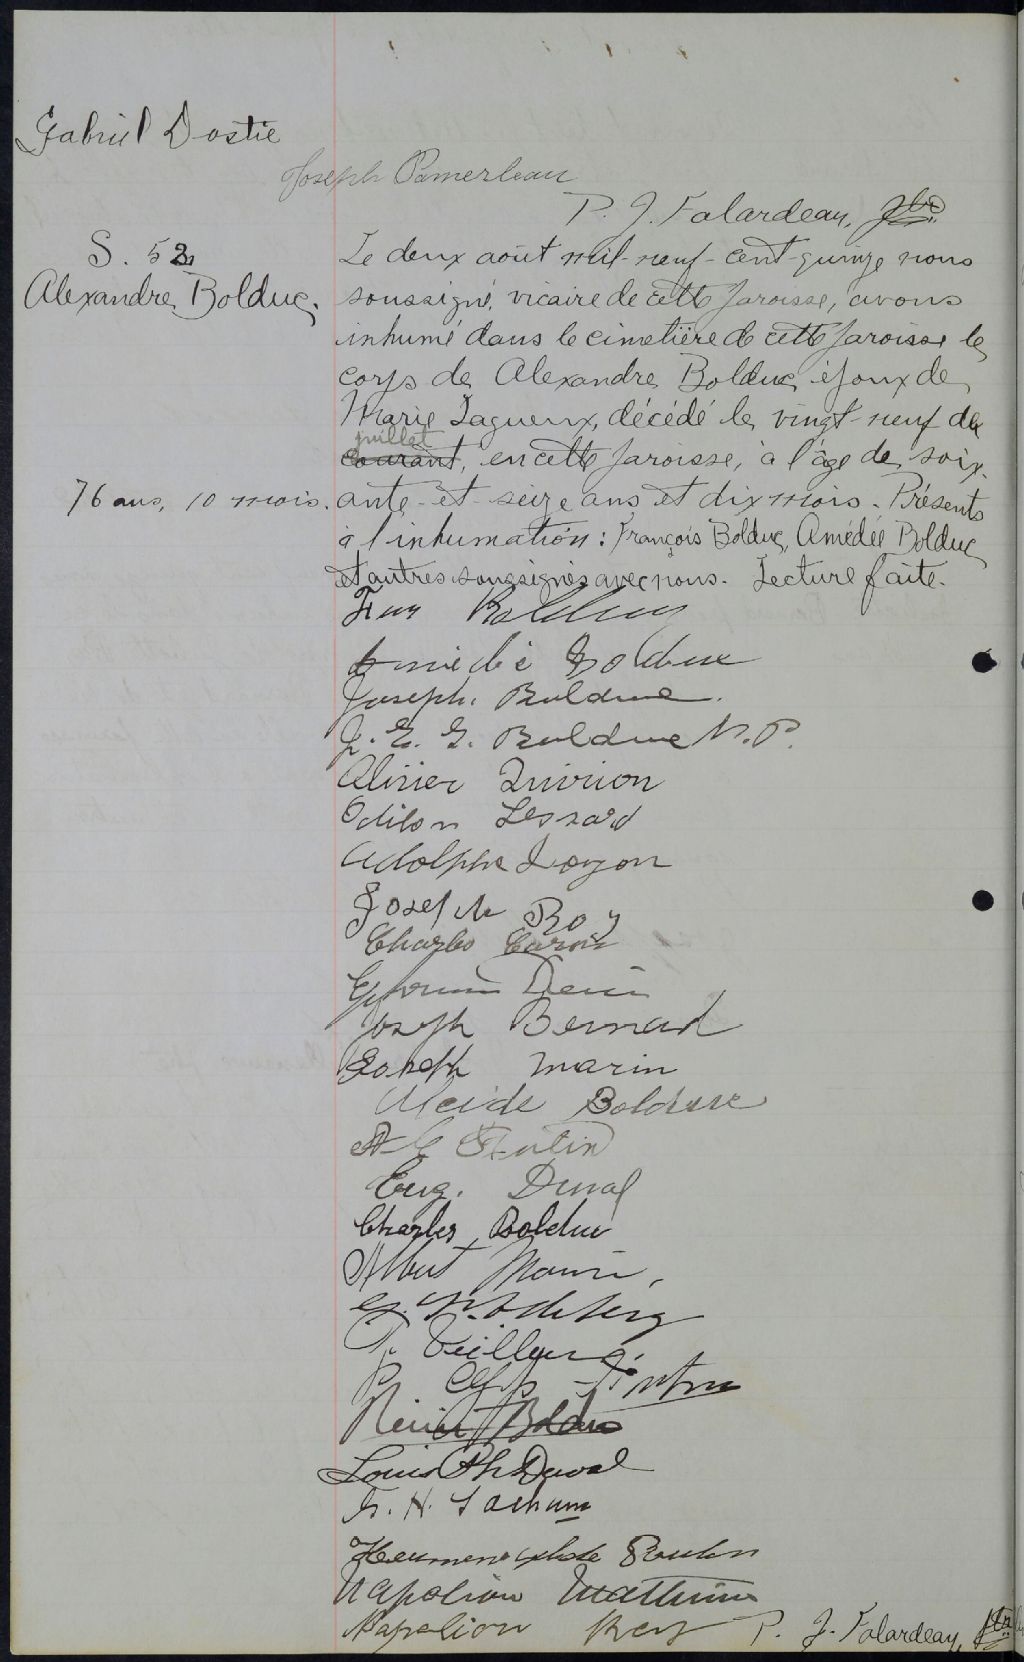 Gabriel Dostie
Joseph Pomerleau
P. J. Falardeau, Ptre
S. 52
Alexandre Bolduc.
Le deux août mil-neuf-cent-quinze nous
soussigné, vicaire de cette paroisse, avons
inhumé dans le cimetière de cette paroisse le
corps de Alexandre Bolduc époux de
Marie Lagueux, décédé le vingt-neuf de
juillet
courant, en cette paroisse, à l'âge de soix-
76 ans, 10 mois.
ante-et-seize ans et dix mois. Présents
à l'inhumation: François Bolduc, Amédée Bolduc
et autres soussignés avec nous. Lecture faite.
Bolduc
Amédé Bolduc
Joseph Bolduc.
J. E. G. Bolduc N. P.
Olivier Quirion
Odilon Lessard
Adolphe
Joseph Roy
Charles
Joseph Bernard
Joseph Morin
Alcide Bolduc
Eug. Duval
Charles Bolduc
Albert Morin,
Bolduc
Louis Ph Duval
Poulin
Napoleon Mathieu
Napoleon Roy
P. J. Falardeau, Ptre